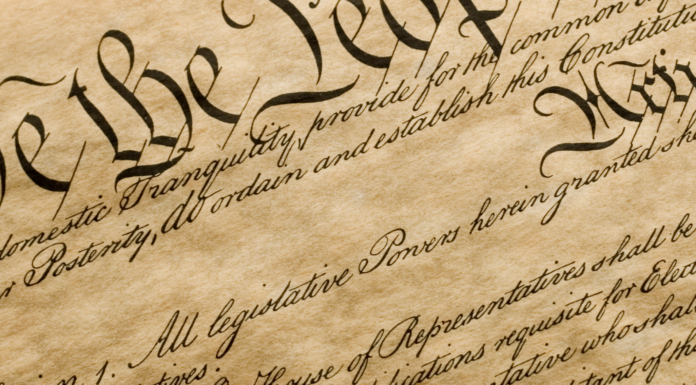 We the Peop
domestic Tranquility, provide for the common
r Posterity, do ordain and establish this Constituti
All legislative Powers herein granted sha
n. 1.
House of Representatives shall be
tives.
ications requisite for Elect
tative who shall
tent of th